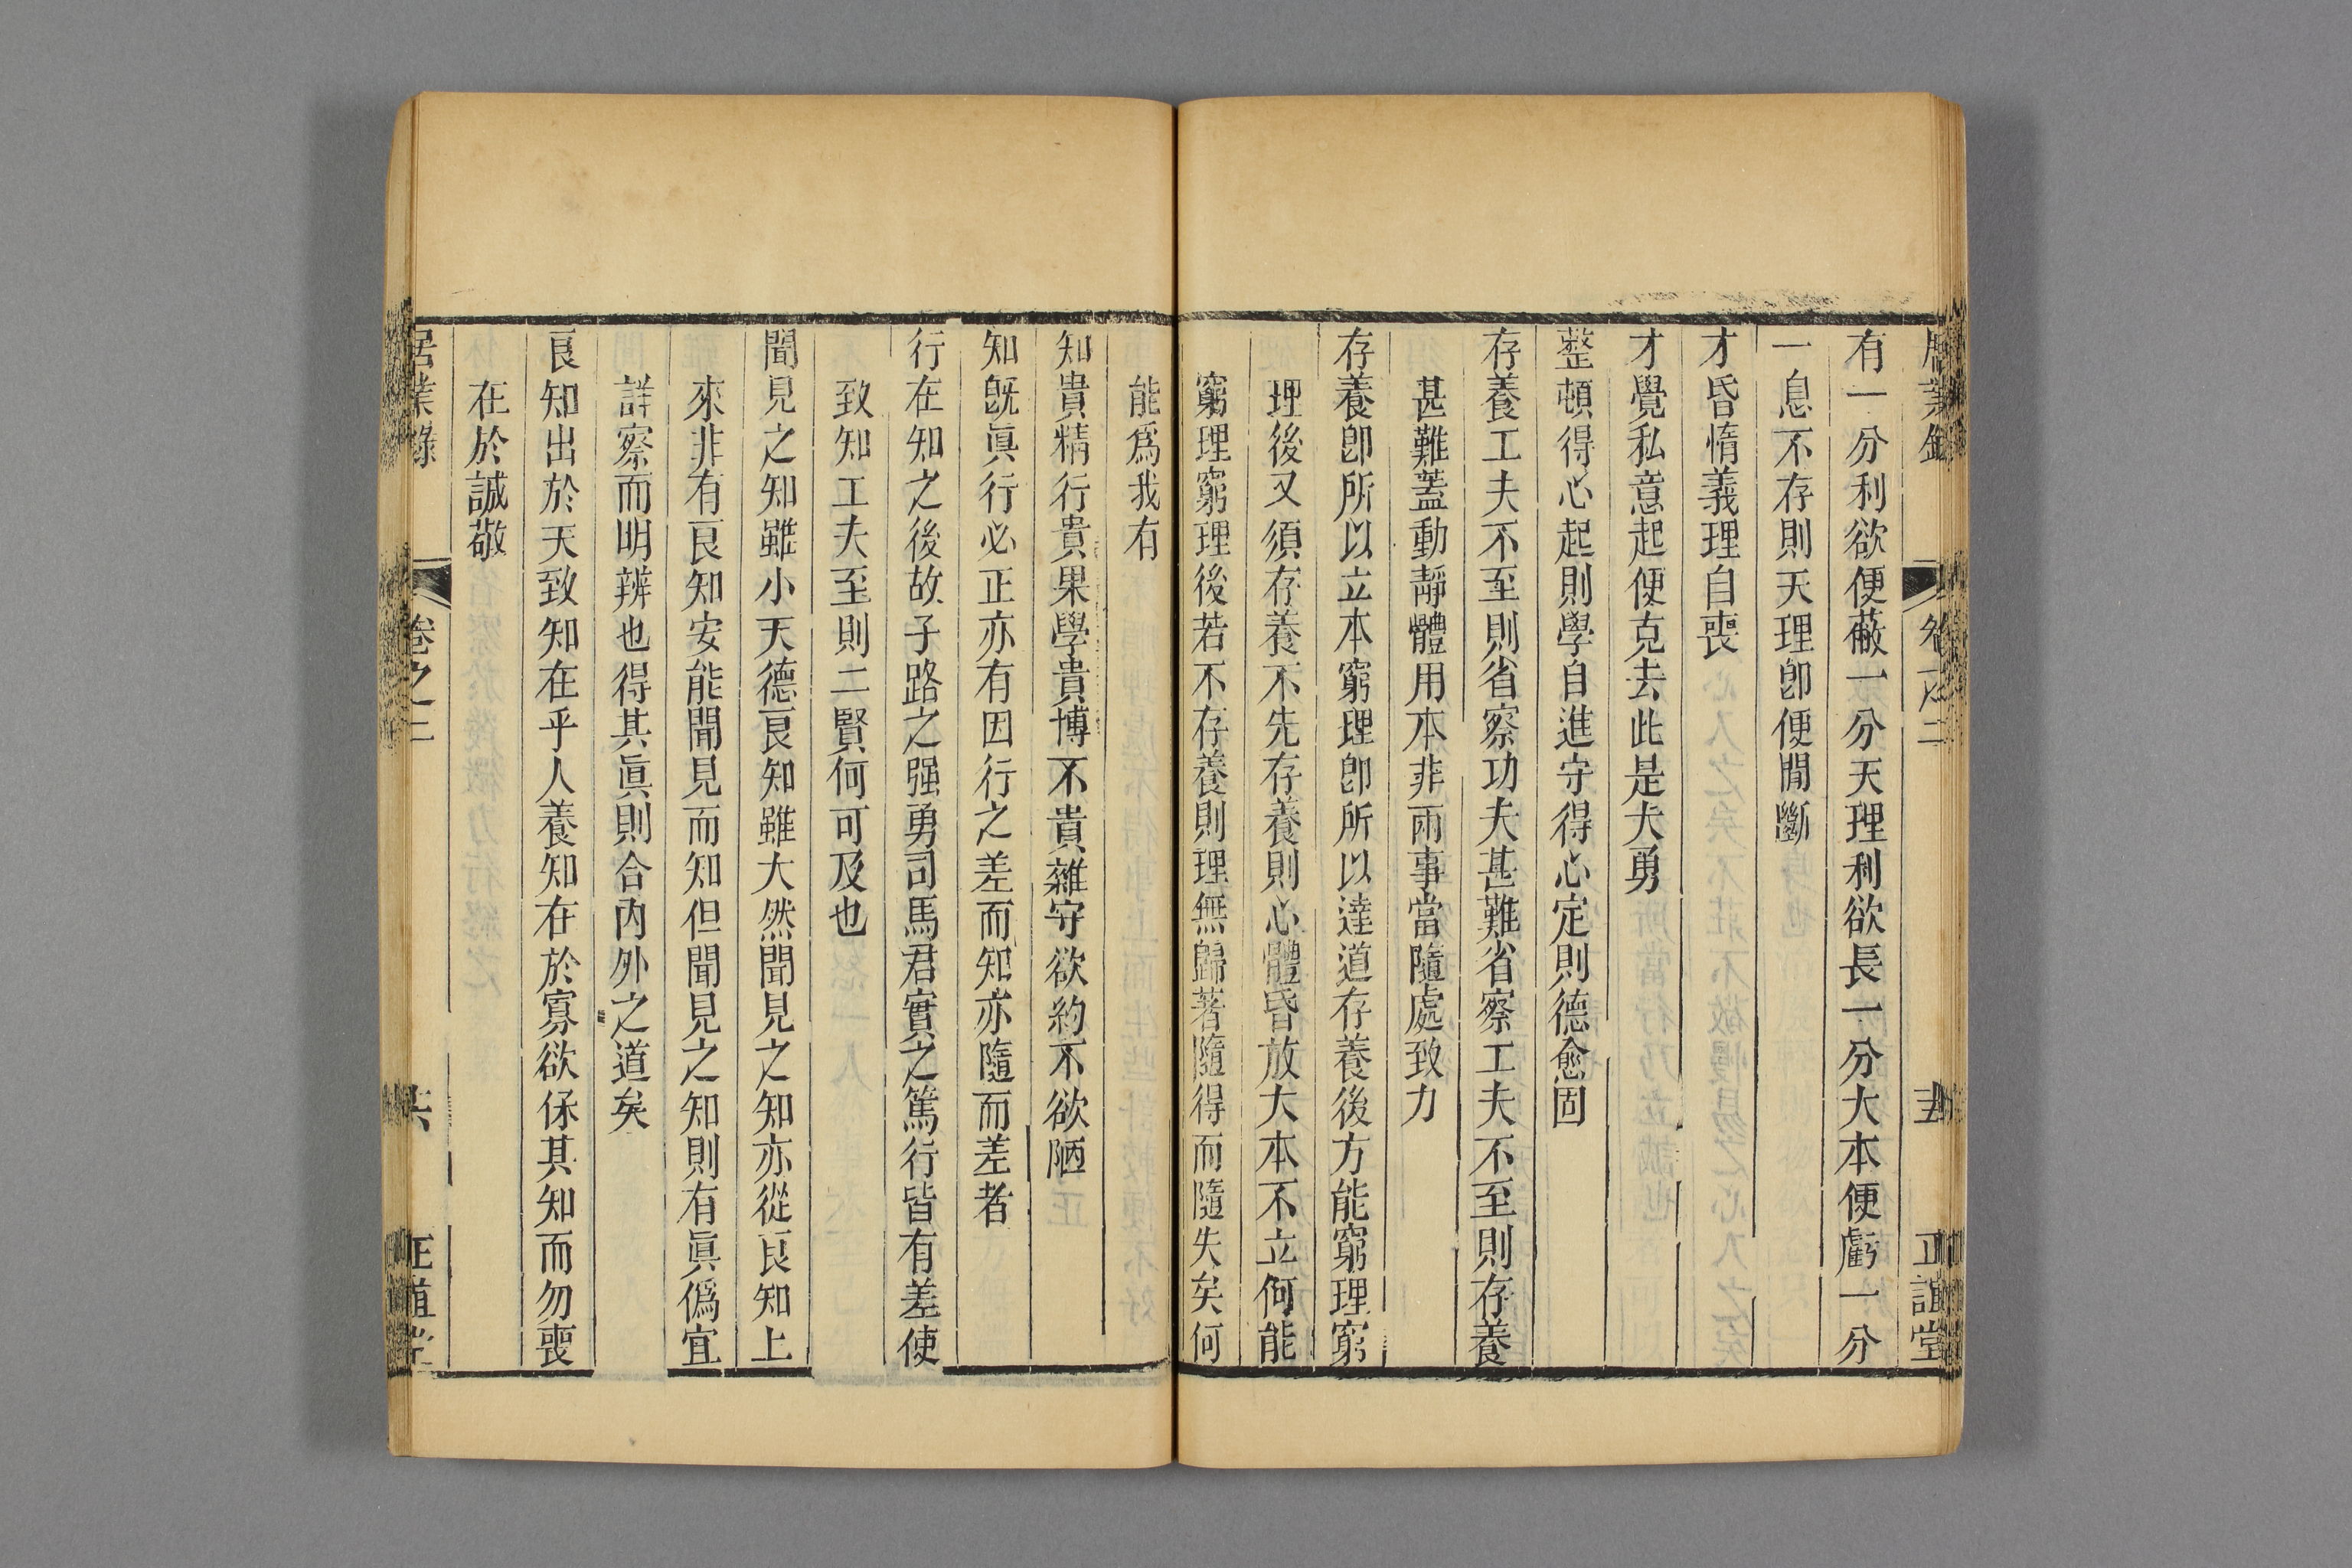 居業錄 卷之二 五 正誼堂
有一分利欲便蔽一分天理利欲長一分大本便虧一分
一息不存則天理卽便閒斷
才昏惰義理自喪
才覺私意起便克去此是大勇
整頓得心起則學自進守得心定則德愈固
存養工夫不至則省察功夫甚難省察工夫不至則存養
甚難蓋動靜體用本非兩事當隨處致力
存養卽所以立本窮理卽所以達道存養後方能窮理窮
理後又須存養不先存養則心體昏放大本不立何能
窮理窮理後若不存養則理無歸著隨得而隨失矣何
能爲我有
知貴精行貴果學貴博不貴雜守欲約不欲陋
知旣眞行必正亦有因行之差而知亦隨而差者
行在知之後故子路之强勇司馬君實之篤行皆有差使
致知工夫至則二賢何可及也
聞見之知雖小天德良知雖大然聞見之知亦從良知上
來非有良知安能聞見而知但聞見之知則有眞僞宜
詳察而明辨也得其眞則合內外之道矣
良知出於天致知在乎人養知在於寡欲保其知而勿喪
在於誠敬
居業錄 卷之二 六 正誼堂